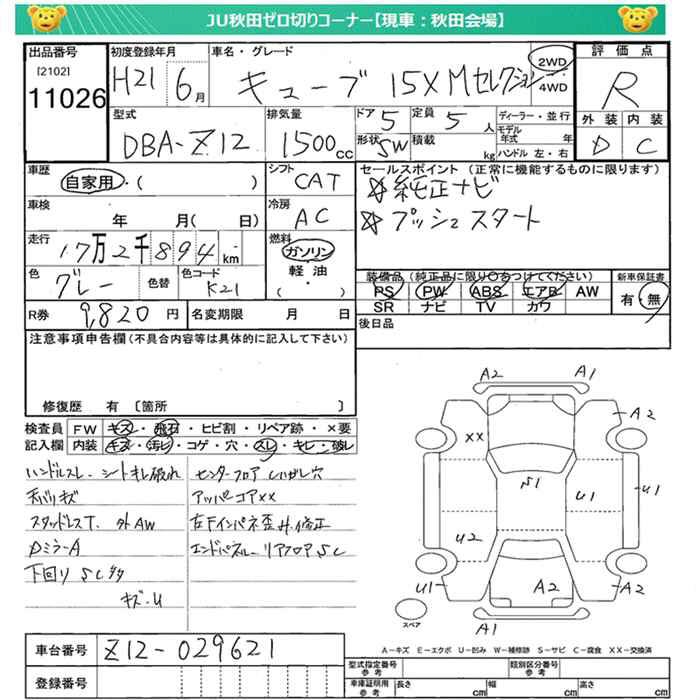 JU秋田ゼロ切りコーナー【現車：秋田会場】
出品番号 初度登録年月 車名・グレード 評価点
[2102]
11026
H21 6月
キューブ 15X Mセレクション
2WD
4WD
R
型式 排気量 ドア 定員 ディーラー・並行 外装 内装
DBA-Z12 1500cc 5 5人
形状 積載 モデル年式 年
SW kg ハンドル 左・右
D C
車歴 シフト セールスポイント（正常に機能するものに限ります）
自家用・( ) CAT
☆純正ナビ
車検 冷房
年 月( 日) AC
☆プッシュスタート
走行 燃料
17万2千894km ガソリン
軽油
( ・ )
色 色替 色コード
グレー K21
装備品（純正品に限り○をつけてください） 新車保証書
PS PW ABS エアB AW 有・無
SR ナビ TV カワ
R券 9,820円 名変期限 月 日 後日品
注意事項申告欄（不具合内容等は具体的に記入して下さい）
修復歴 有 〔箇所 〕
検査員 FW キズ・飛石・ヒビ割・リペア跡・×要
記入欄 内装 キズ・汚レ・コゲ・穴・スレ・キレ・破レ
ハンドルスレ、シートキレ破れ
天バリキズ
スタッドレスT、外AW
Dミラー A
下回り SC多々
キズ・U
センターフロア しいがし穴
アッパコア××
左Fインパネ歪み、修正
エンドパネル、リアフロア SC
A2 A1
A2
××
S1 U1 U1
U2
U1 A2 A2
A1
スペア
A－キズ E－エクボ U－凹み W－補修跡 S－サビ C－腐食 XX－交換済
車台番号 Z12-029621
登録番号
型式指定番号 参考 類別区分番号 参考
車庫証明用 参考 長さ cm 幅 cm 高さ cm